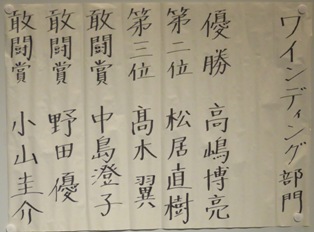 ワインディング部門
優勝 高嶋博亮
第二位 松居直樹
第三位 髙木翼
敢闘賞 中島澄子
敢闘賞 野田優
敢闘賞 小山圭介